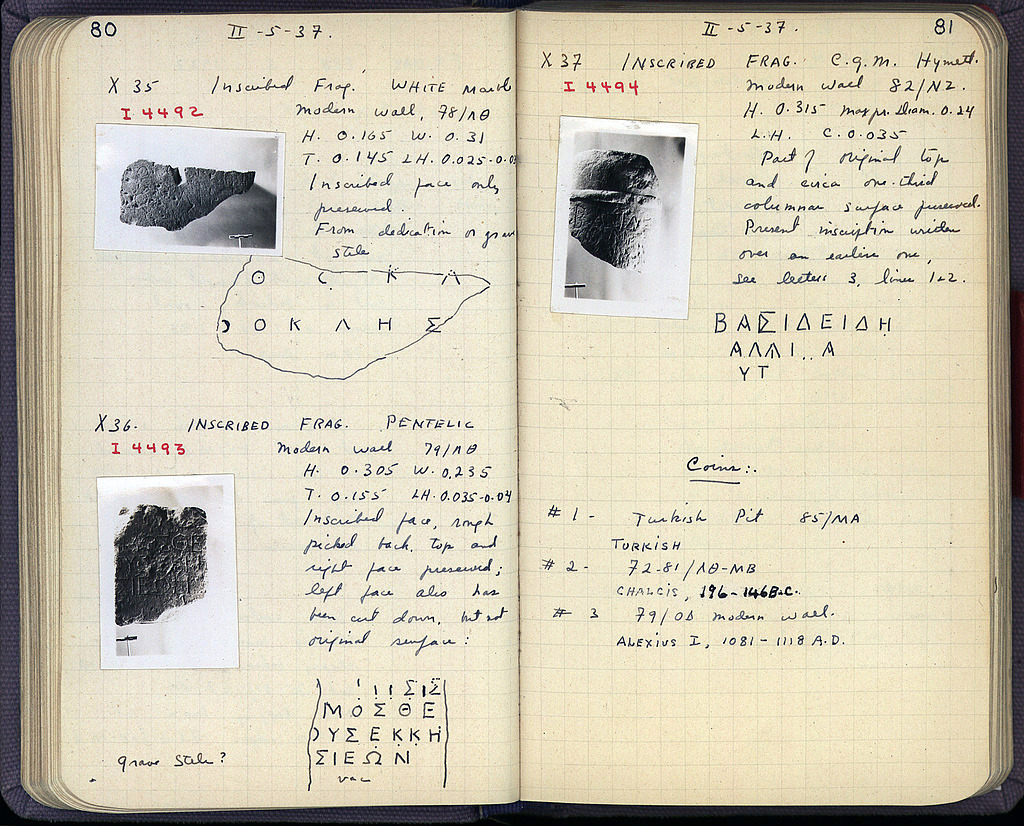 80
II-5-37.
X 35 Inscribed Frag. WHITE marb
I 4492
Modern wall, 78/ΛΘ
H. 0.165 W. 0.31
T. 0.145 LH. 0.025-0.0
Inscribed face only
preserved.
From dedication or grave
stele
Ο Κ Λ
Ο Κ Λ Η Σ
X36. INSCRIBED FRAG. PENTELIC
I 4493
Modern wall 79/ΛΘ
H. 0.305 W. 0.235
T. 0.155 LH. 0.035-0.04
Inscribed face, rough
picked back, top and
right face preserved;
left face also has
been cut down, but not
original surface:
Σ Ι Σ
Μ Ο Σ Θ Ε
Ο Υ Σ Ε Κ Κ Η
Σ Ι Ε Ω Ν
vac
grave stele?
81
II-5-37.
X 37 INSCRIBED FRAG. C.g.M. Hymett.
I 4494
Modern wall 82/ΝΖ.
H. 0.315 max pr. Diam. 0.24
L.H. C. 0.035
Part of original top
and circa one-third
columnar surface preserved.
Present inscription written
over an earlier one,
see letters 3, lines 1+2.
Β Α Σ Ι Δ Ε Ι Δ Η
Α Λ Λ Ι . . Α
Υ Τ
Coins:.
#1 - Turkish Pit 85/ΜΑ
TURKISH
#2 - 72-81/ΛΘ-ΜΒ
CHALCIS, 196-146 B.C.
# 3 79/ΟΔ modern wall.
ALEXIUS I, 1081-1118 A.D.